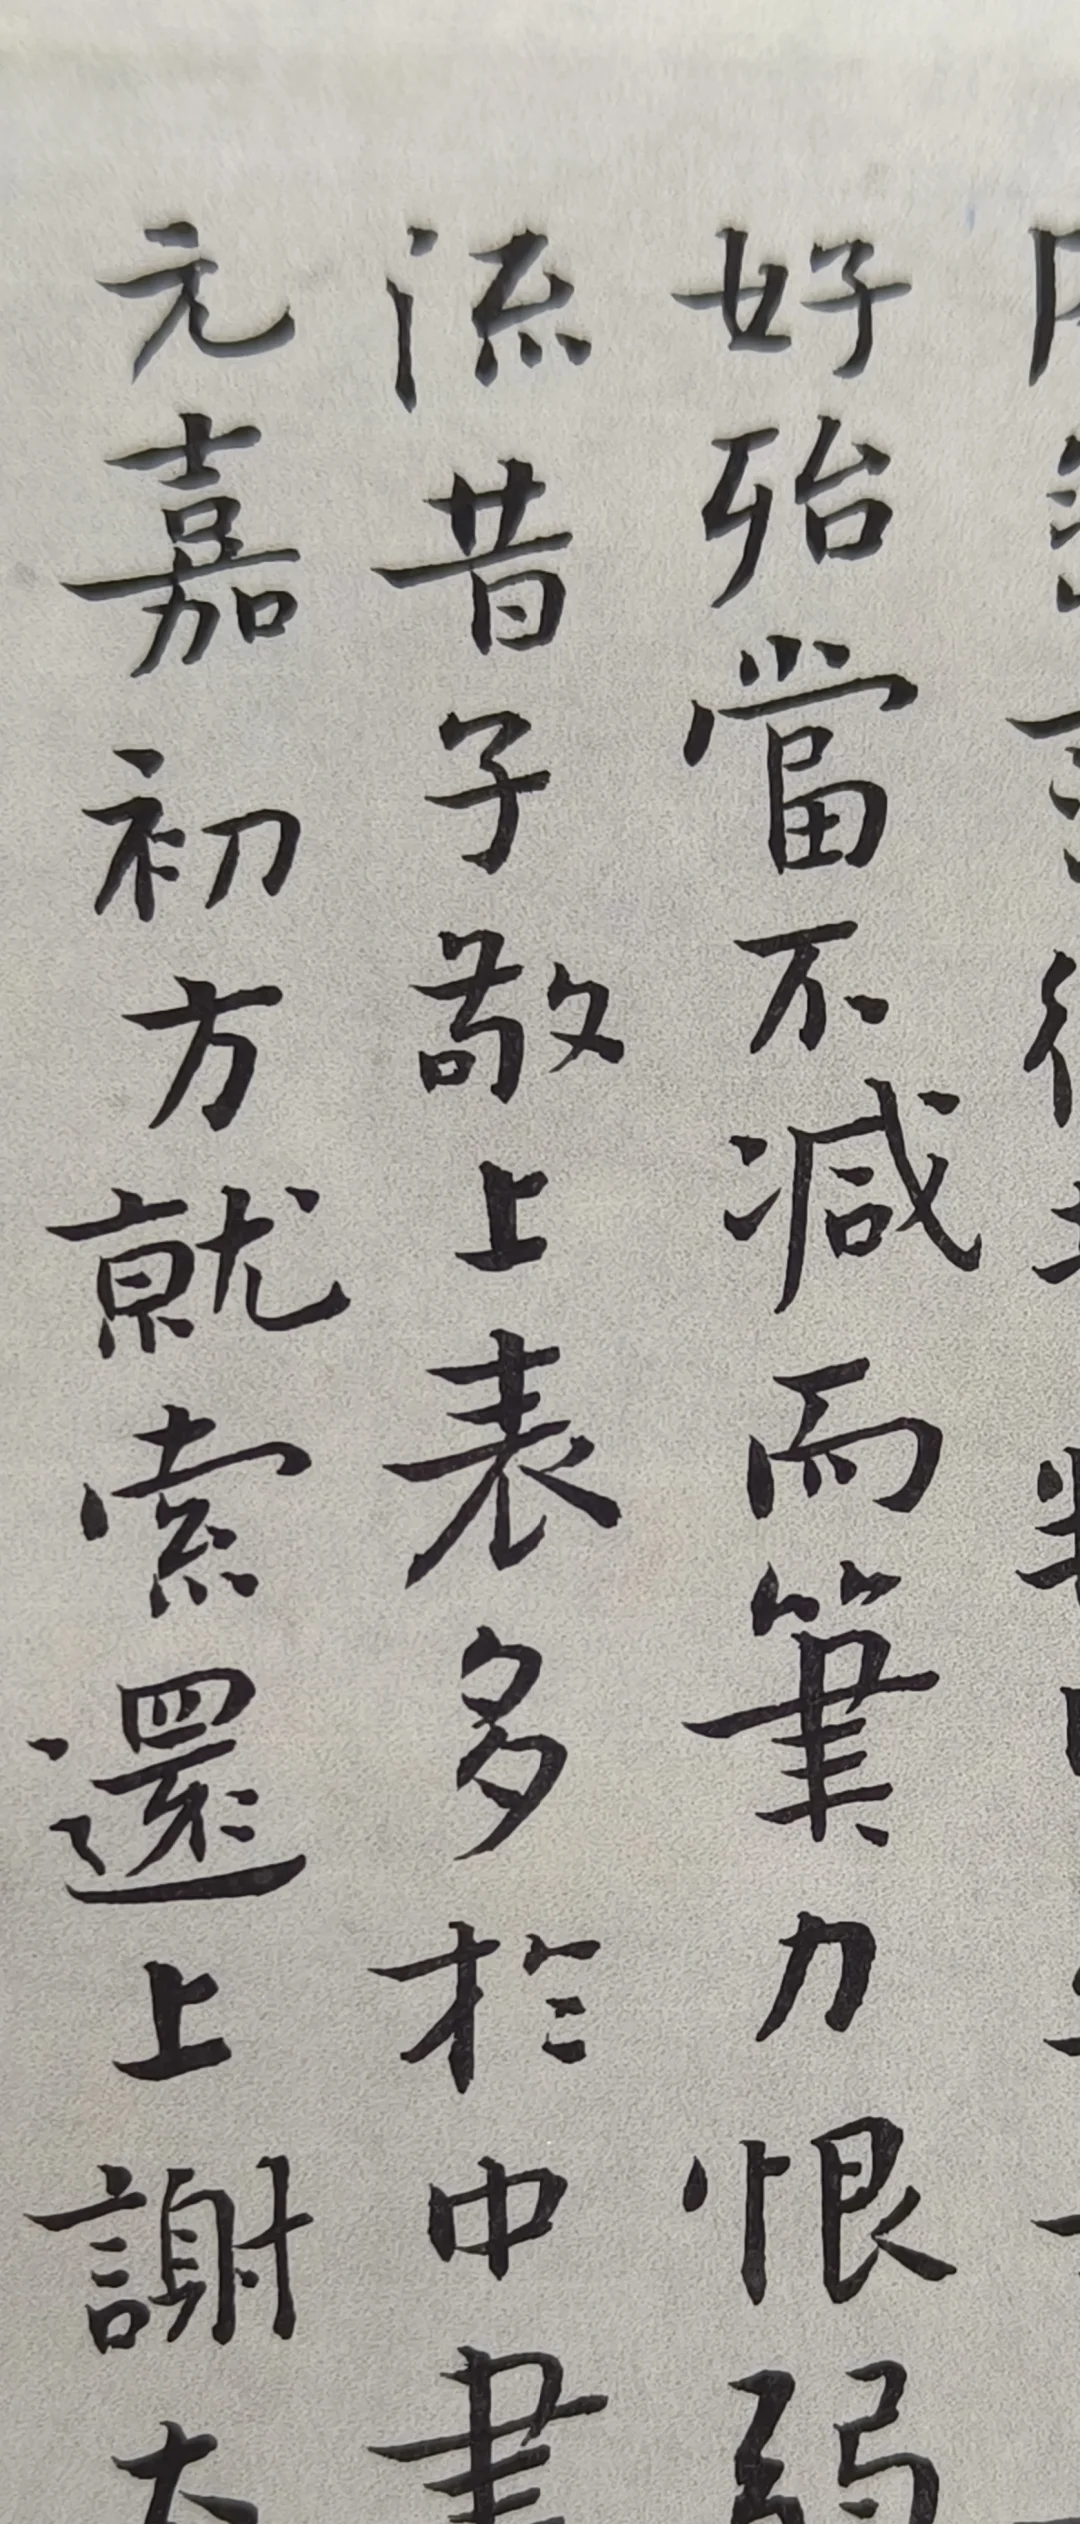 好殆當不減而筆力恨弱
流昔子敬上表多於中書
元嘉初方就索還上謝太